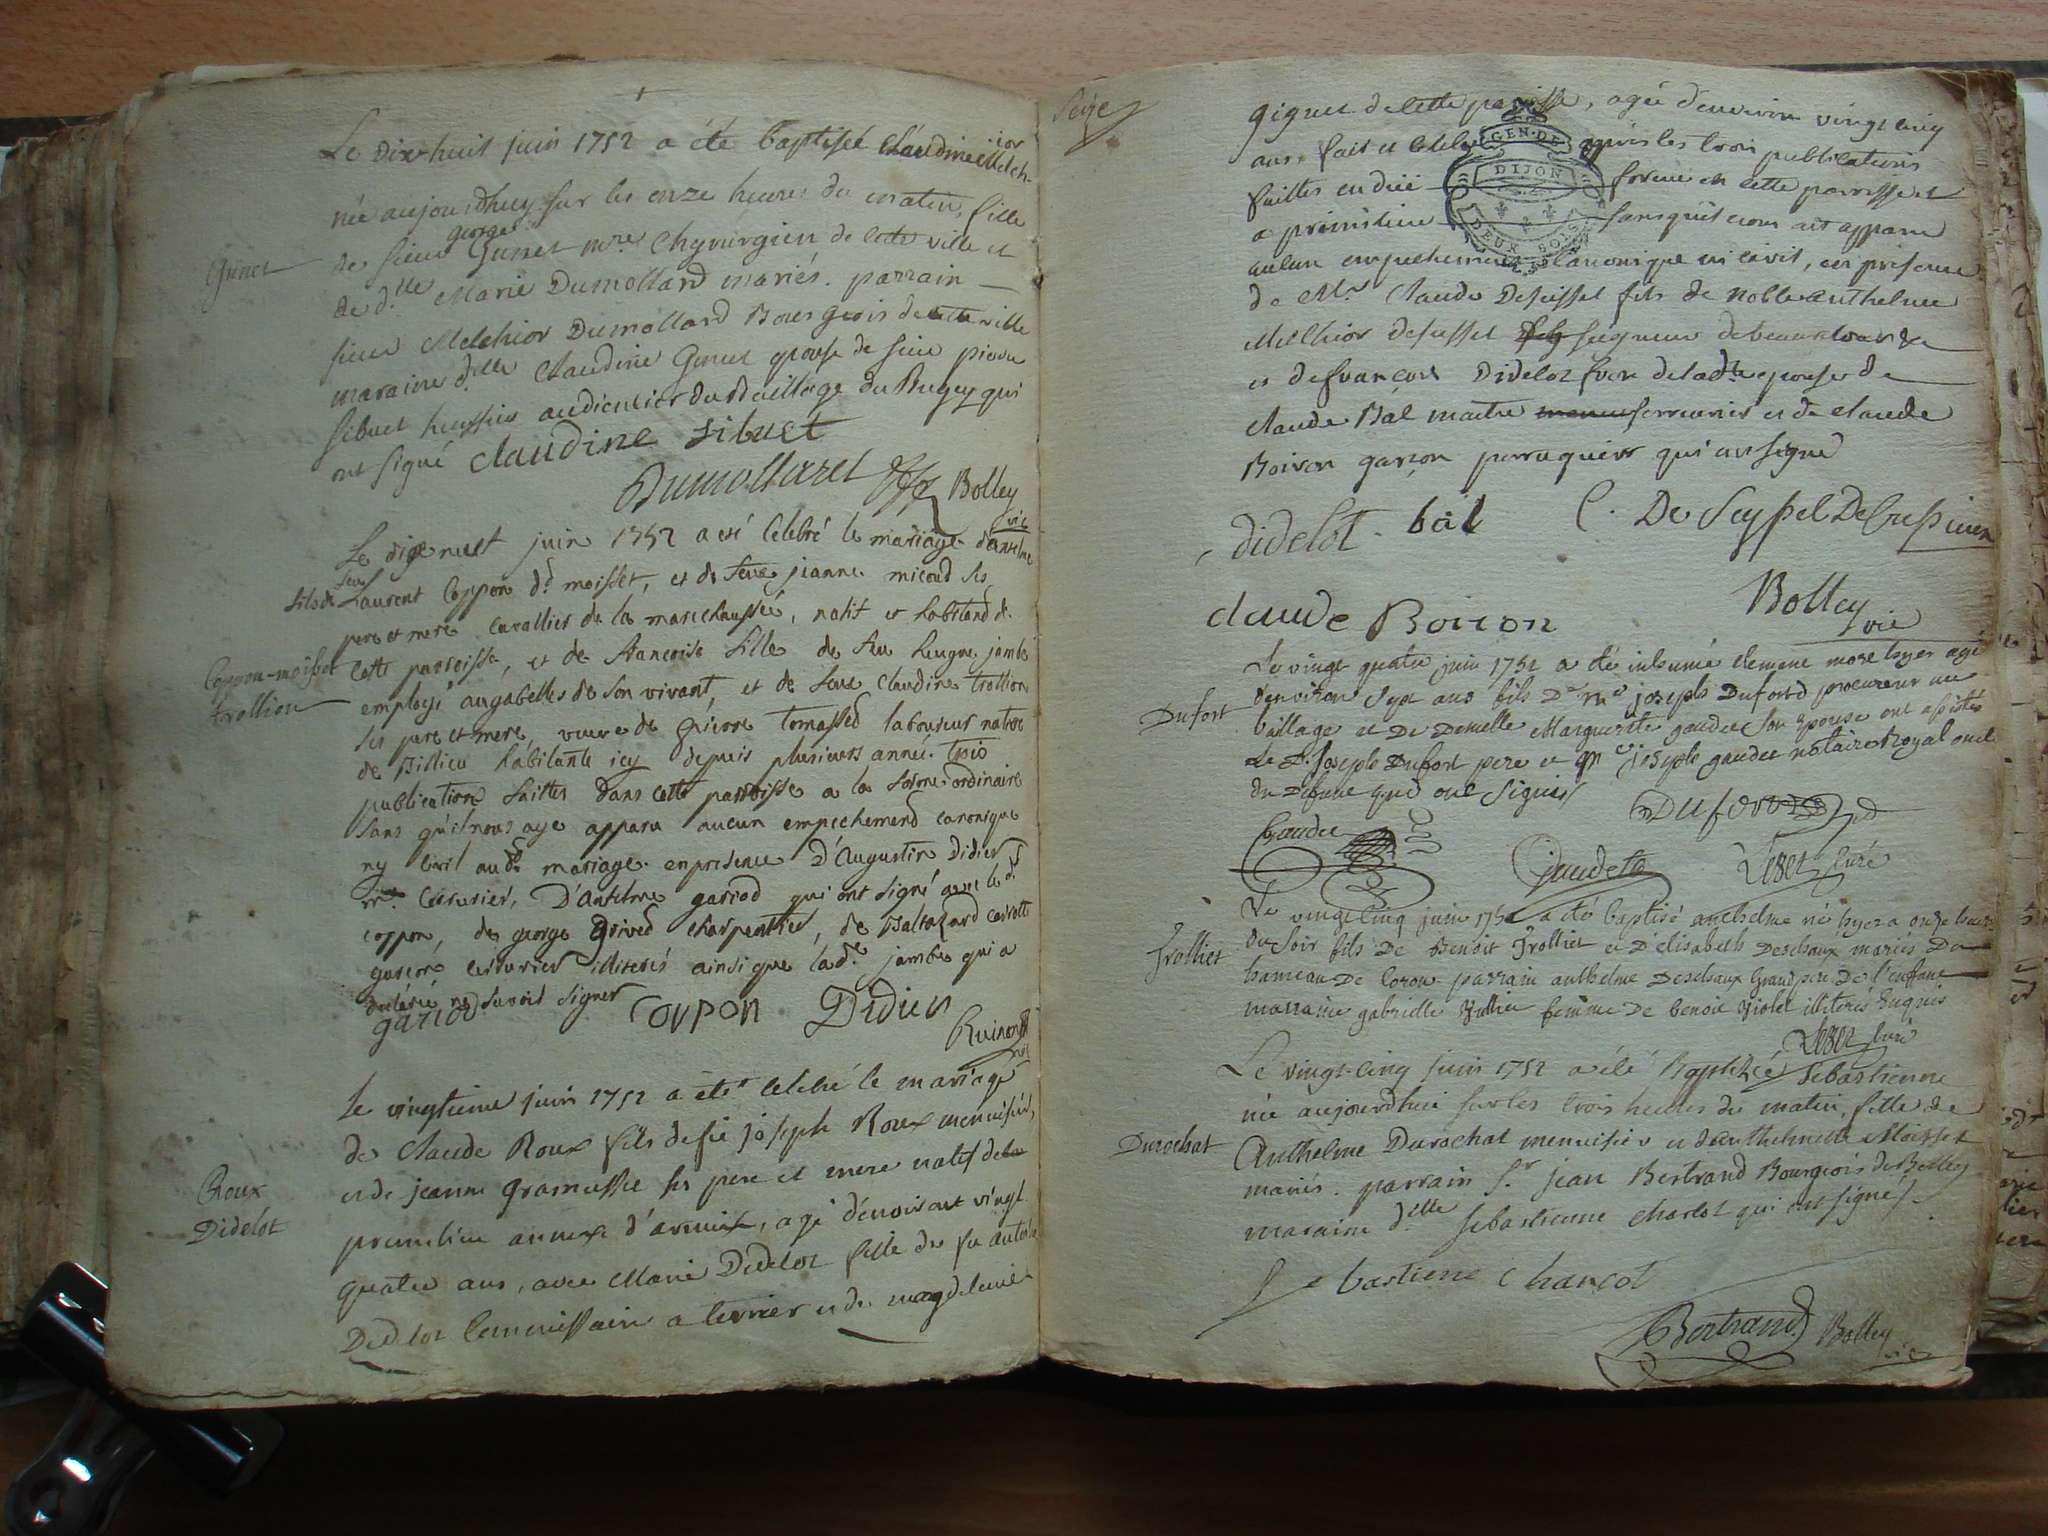 Le Dixhuit juin 1752 a été baptisée Claudine Melch-
ior
née aujourdhuy sur les onze heures du matin, fille
george
de sieur Genet mre. Chyrurgien de cette ville et
Genet
de d.lle Marie Dumollard mariés. parrain
sieur Melchior Dumollard Bourgeois de cette ville
maraine d.elle Claudine Genet epouse de sieur pierre
sibuet huissier audiencier du Bailliage du Bugey qui
ont signé Claudine Sibuet
Dumollard Bolley
vic
Le dixe neuf juin 1752 a été Celebré le mariage d'antelme
fils de feu Laurent Coppon dt moisset, et de feue jeanne micoud ses
pere et mere cavallier de la marechaussée, natif et habitand de
Coppon-moisset
trollion
cette parroisse, et de francoise fille de feu hugue jambe
employé augabelles de son vivant, et de feue Claudine trollion
ses pere et mere, veuve de pierre tomassed laboureur native
de Billieu habitante icy depuis plusieurs année. trois
publication faittes dans cette parroisse a la forme ordinaire
sans qu'il nous aye apparu aucun empechemend canonique
ny civil audt mariage. en presence D'Augustin Didier
mre. serrurier, D'Antelme garrod qui ont signé avec le dt
coppon, de george Grived charpentier, de Baltazard
garcon serrurier illiterés ainsi que la de. jambe qui a
declérée ne savoir signer
garrod Coupon Didier
vic
le vingtieme juin 1752 a été Celebré le mariage
de Claude Roux fils de feu joseph Roux menuisier,
et de jeanne gramusse ses pere et mere natif de
Roux
Didelot
premelieu annexe d'armix, agé d'environt vingt
quatre ans, avec Marie Didelot fille de fu
Didelot Commissaire a terrier et de magdeleine
Seize
Giguet de cette paroisse, agée d'environ vingt cinq
ans. fait et celebré apres les trois publications
GEN. DE
DIJON
DEUX SOLS
faittes en due forme en cette parroisse et
a premelieu sans qu'il nous ait apparu
aucun empechement Canonique ni civil, en presence
de Mr. Claude Deseissel fils de noble anthelme
Melchior deseissel seigneur de beauretour &a
et de francois Didelot frere de la dte epouse de
claude Bal maitre serrurier et de claude
Boiron garçon perruquier qui ont signé
didelot. bal C. De Seyssel De Cressieux
claude Boiron
Bolley
vic
Le vingt quatre juin 1752 a été inhumé clement mort hyer agé
Dufort
denviron sept ans fils De me joseph Dufort procureur au
baillage et De Demelle Marguerite gaudet son epouse ont assistés
Le d. Joseph Dufort pere et me joseph gaudet notaire Royal oncle
du defunt qui ont signés
Dufort
Gaudet
Gaudet
curé
Le vingt cinq juin 1752 a été baptisé anthelme né hyer a onze heures
Trolliet
du soir fils De Benoit Trolliet et D'elisabeth Deschaux mariés Du
hameau De Coron parrain anthelme Deschaux Grand pere De l'enfant
marraine gabrielle femme De benoit Violet illiterés Enquis
curé
Le vingt-cinq juin 1752 a été Baptizée Sebastienne
née aujourdhui sur les trois heures du matin, fille de
Durochat
Anthelme Durochat menuisier et d'anthelmette Moisset
mariés. parrain Sr. jean Bertrand Bourgeois de Belley
maraine d.elle sebastienne charcot qui ont signés.
Sebastiene Charcot
Bertrand Bolley
vic